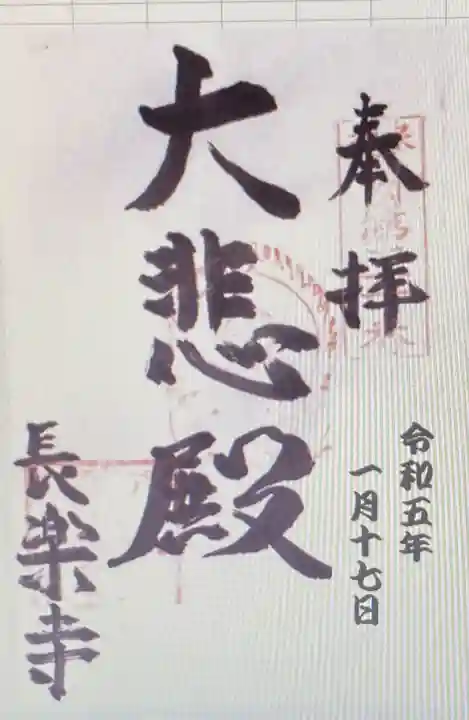 奉拝
令和五年
一月十七日
大悲殿
長楽寺